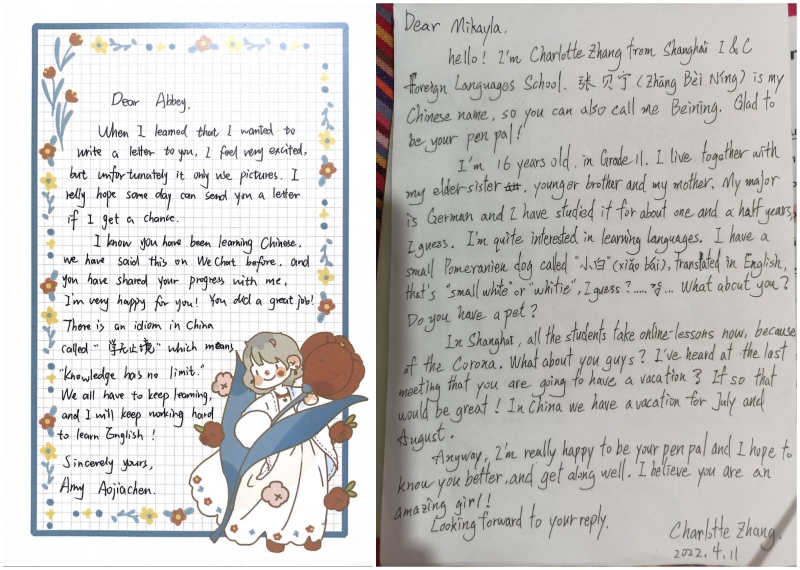 Dear Abbey,
When I learned that I wanted to
write a letter to you, I feel very excited,
but unfortunately it only use pictures. I
relly hope some day can send you a letter
if I get a chance.
I know you have been learning Chinese,
we have said this on WeChat before, and
you have shared your progress with me,
I'm very happy for you! You did a great job!
There is an idiom in China
called "学无止境" which means
"Knowledge has no limit."
We all have to keep learning,
and I will keep working hard
to learn English!
Sincerely yours,
Amy Aojiachen.
Dear Mikayla.
hello! I'm Charlotte Zhang from Shanghai I & C
Foreign Languages School. 张贝宁 (Zhāng Bèi Níng) is my
Chinese name, so you can also call me Beining. Glad to
be your pen pal!
I'm 16 years old, in Grade 11. I live together with
my elder sister, younger brother and my mother. My major
is German and I have studied it for about one and a half years,
I guess. I'm quite interested in learning languages. I have a
small Pomeranien dog called "小白" (xiǎo bái), translated in English,
that's "small white" or "whitie", I guess?..... What about you?
Do you have a pet?
In Shanghai, all the students take online-lessons now, because
of the Corona. What about you guys? I've heard at the last
meeting that you are going to have a vacation? If so that
would be great! In China we have a vacation for July and
August.
Anyway, I'm really happy to be your pen pal and I hope to
know you better, and get along well. I believe you are an
amazing girl!
Looking forward to your reply.
Charlotte Zhang.
2022.4.11.